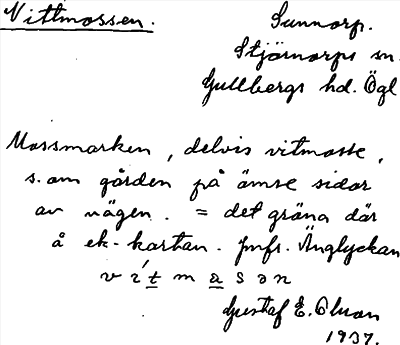 Vittmossen.
Sunnorp.
Stjärnorps sn.
Gullbergs hd. Ögl
Mossmarken, delvis vitmosse,
s. om gården på ömse sidor
av vägen. = det gröna där
å ek-kartan. Jmfr. Änglyckan
v í t m a s ə n
Gustaf E. Olson
1937.